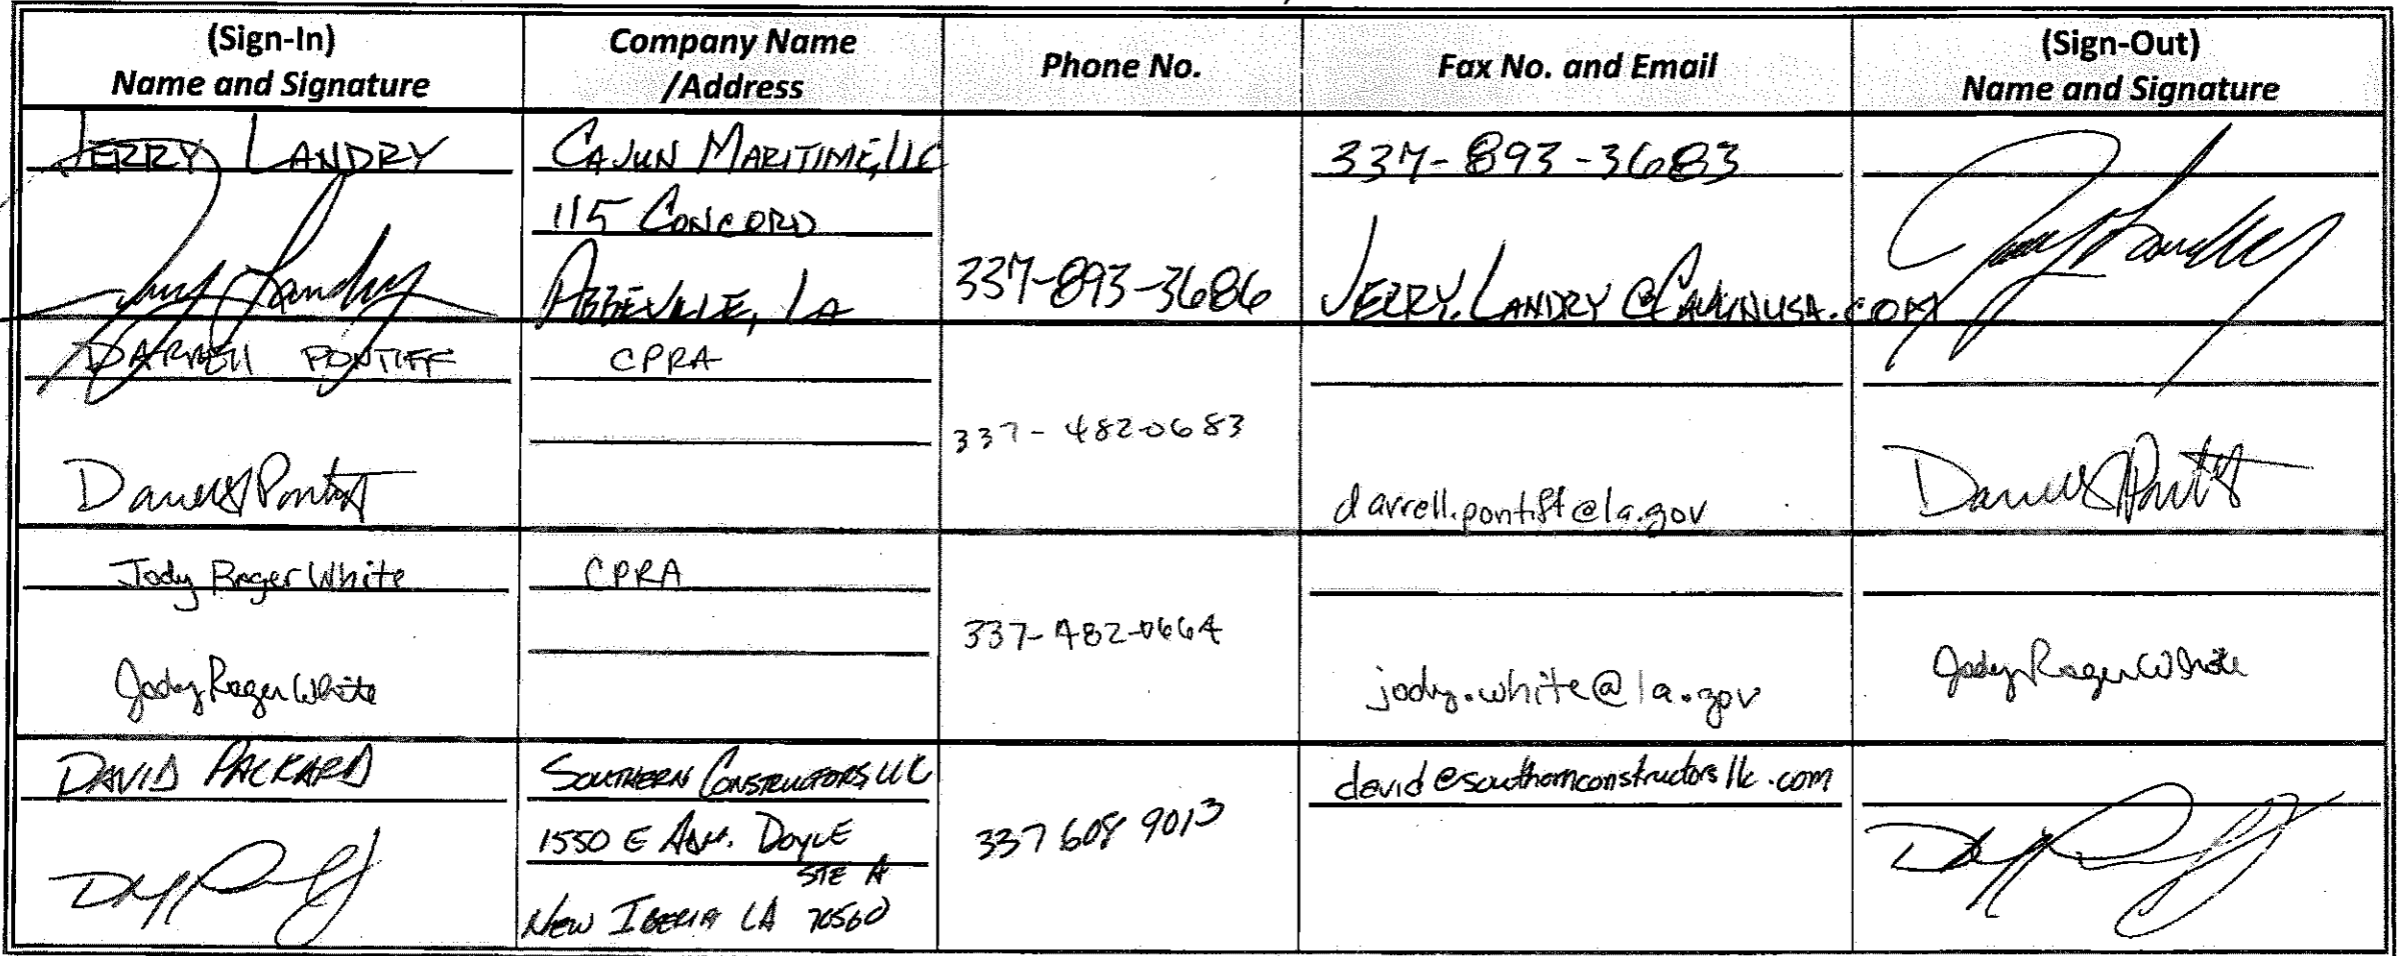 (Sign-In)
Name and Signature
Company Name
/Address
Phone No.
Fax No. and Email
(Sign-Out)
Name and Signature
JERRY LANDRY
Jerry Landry
CAJUN MARITIME, LLC
115 CONCORD
ABBEVILLE, LA
337-893-3686
337-893-3683
JERRY.LANDRY@CAJUNUSA.COM
Jerry Landry
DARRELL PONTIFF
Darrell Pontiff
CPRA
337-482-0683
darrell.pontiff@la.gov
Darrell Pontiff
Jody Roger White
Jody Roger White
CPRA
337-482-0664
jody.white@la.gov
Jody Roger White
DAVID PACKARD
SOUTHERN CONSTRUCTORS, LLC
1550 E ADM. DOYLE
STE A
NEW IBERIA LA 70560
337 608 9013
david@southernconstructorsllc.com